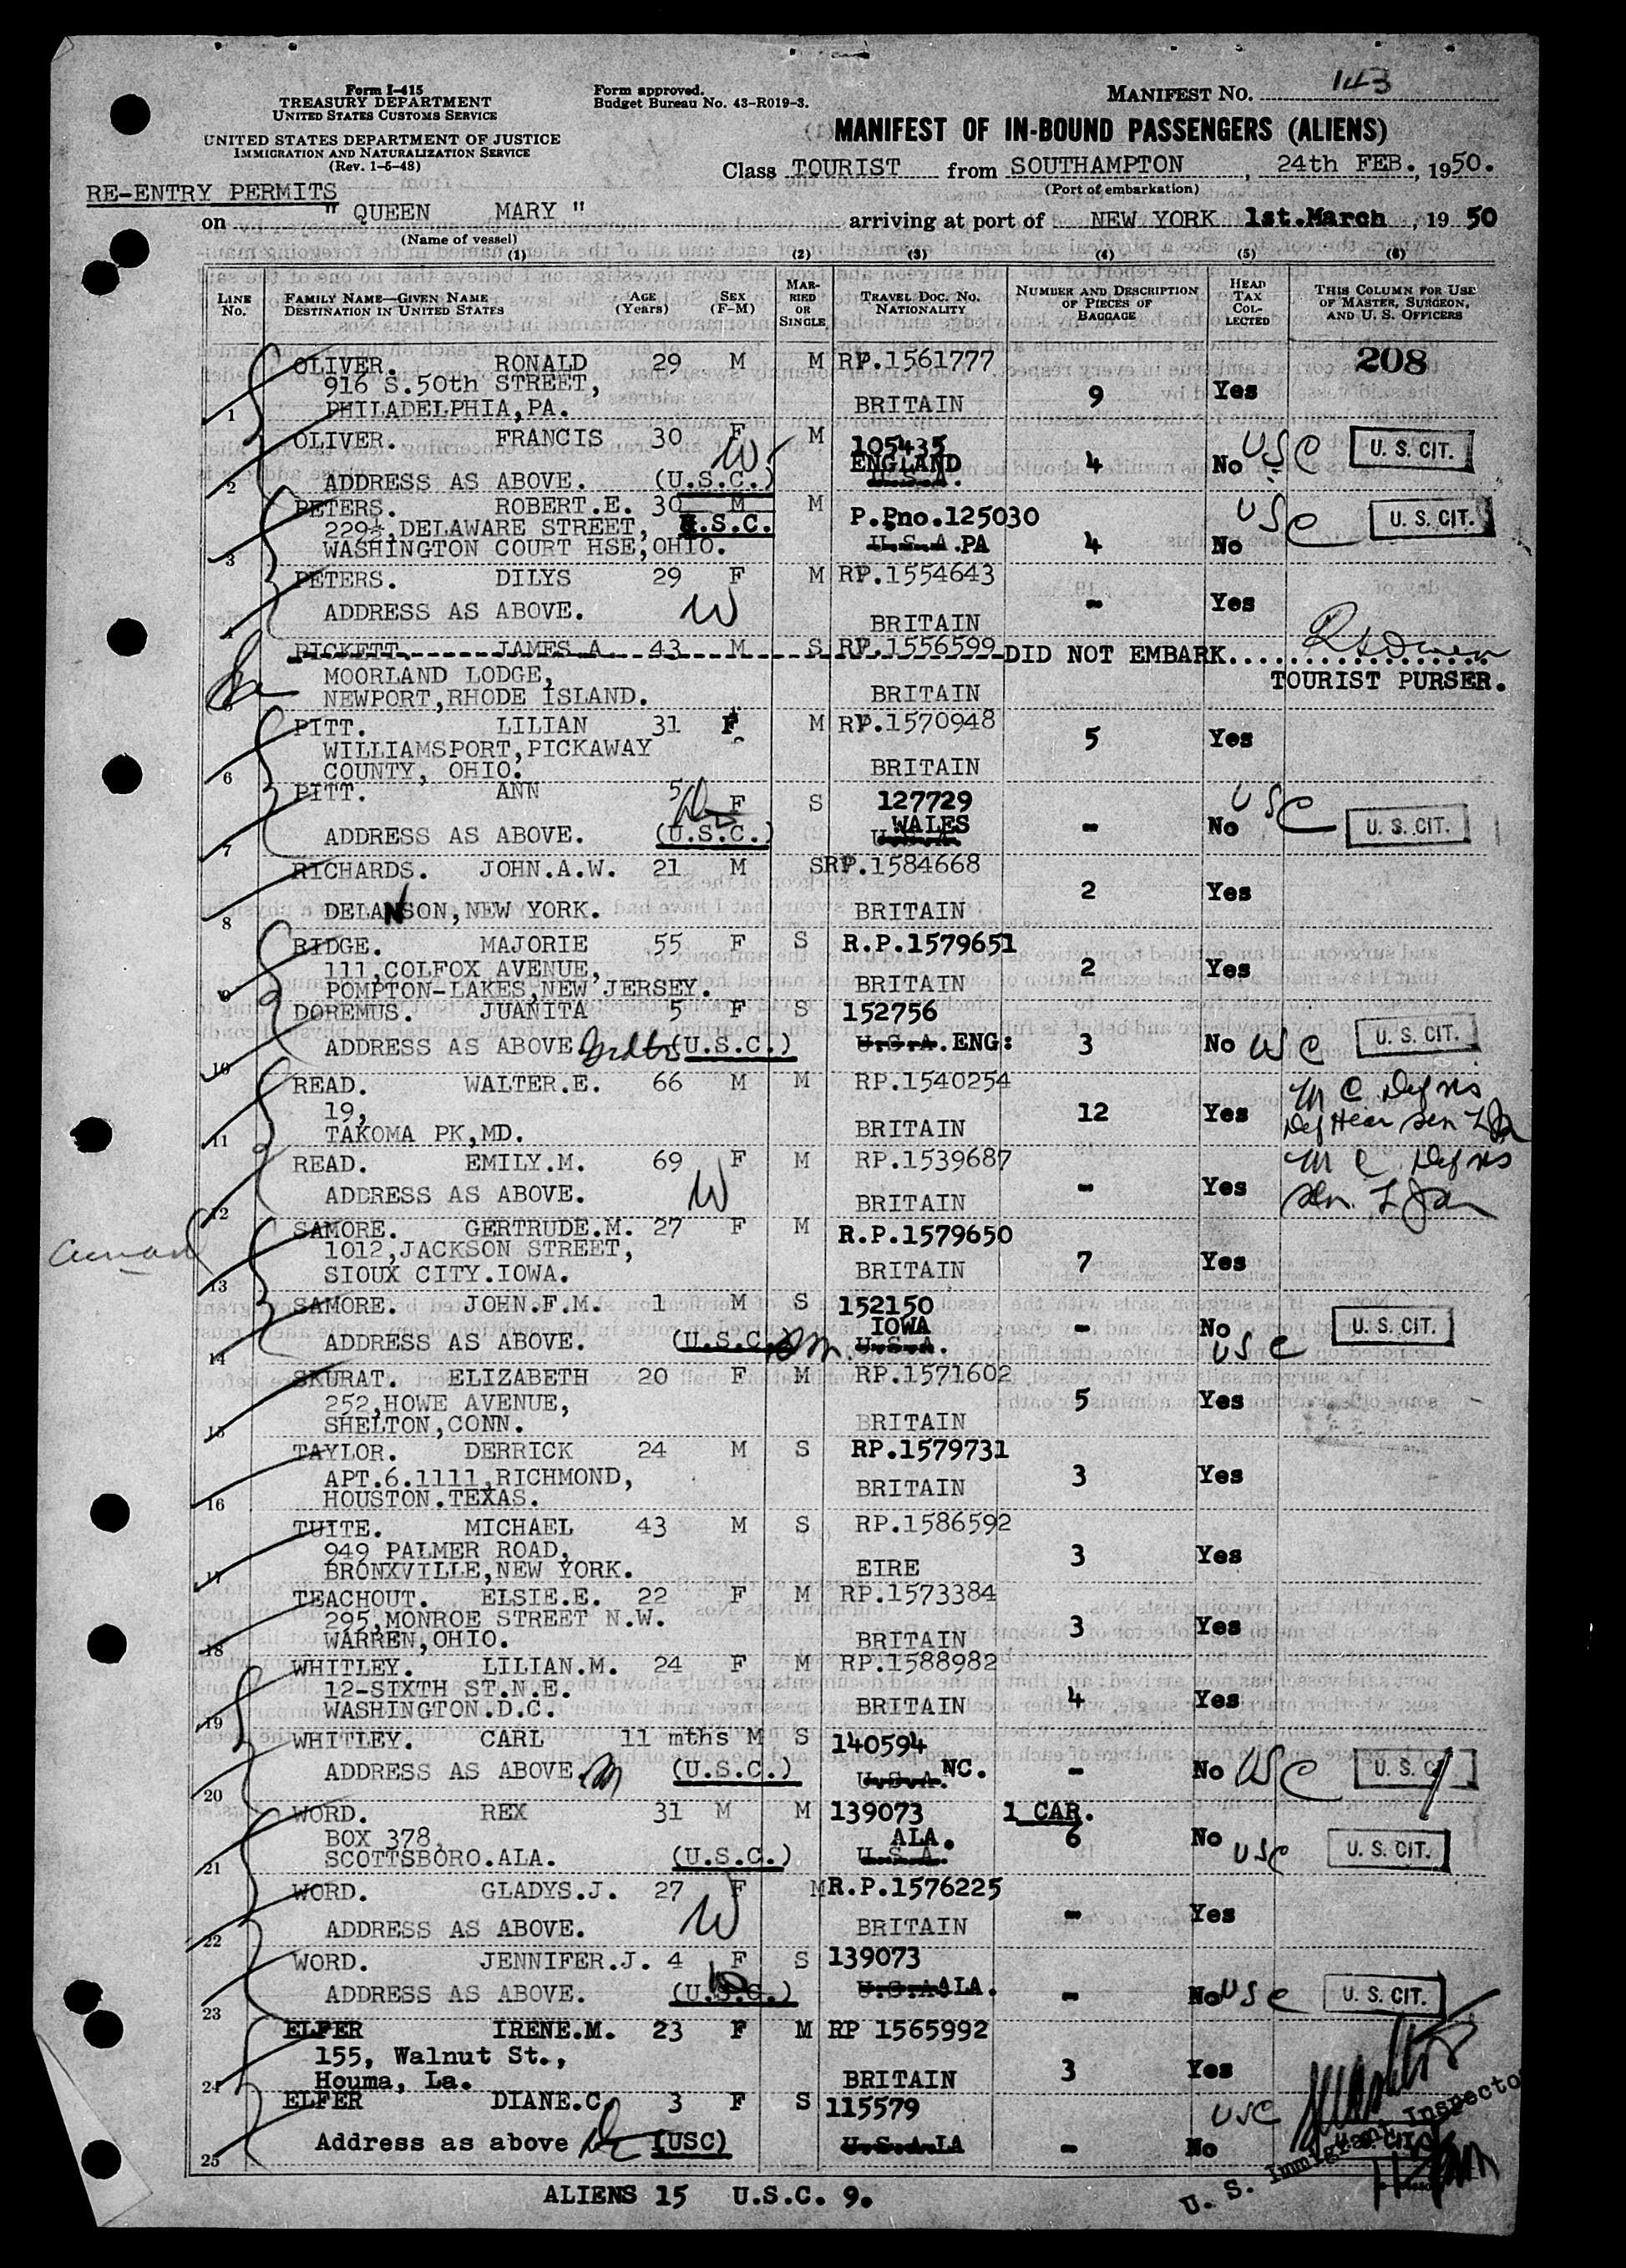 143
Form I-415
TREASURY DEPARTMENT
UNITED STATES CUSTOMS SERVICE
Form approved.
Budget Bureau No. 43-R019-3.
MANIFEST NO.
UNITED STATES DEPARTMENT OF JUSTICE
IMMIGRATION AND NATURALIZATION SERVICE
(Rev. 1-5-48)
MANIFEST OF IN-BOUND PASSENGERS (ALIENS)
Class TOURIST from SOUTHAMPTON, 24th FEB., 1950.
(Port of embarkation)
RE-ENTRY PERMITS
on " QUEEN MARY " arriving at port of NEW YORK 1st.March, 1950
(Name of vessel)
(1) (2) (3) (4) (5) (6)
LINE No. FAMILY NAME—GIVEN NAME DESTINATION IN UNITED STATES AGE (Years) SEX (F-M) MARRIED OR SINGLE TRAVEL DOC. NO. NATIONALITY NUMBER AND DESCRIPTION OF PIECES OF BAGGAGE HEAD TAX COLLECTED THIS COLUMN FOR USE OF MASTER, SURGEON, AND U. S. OFFICERS
OLIVER. RONALD 29 M M RP.1561777 208
916 S.50th STREET,
1 PHILADELPHIA,PA. BRITAIN 9 Yes
OLIVER. FRANCIS 30 F M 105435 USC U. S. CIT.
W ENGLAND 4 No
2 ADDRESS AS ABOVE. (U.S.C.) U.S.A.
PETERS. ROBERT.E. 30 M M P.Pno.125030 USC U. S. CIT.
229½,DELAWARE STREET, U.S.C.
3 WASHINGTON COURT HSE,OHIO. U.S.A.PA 4 No
PETERS. DILYS 29 F M RP.1554643
4 ADDRESS AS ABOVE. W BRITAIN - Yes
PICKETT. JAMES A. 43 M S RP.1556599 DID NOT EMBARK..................
MOORLAND LODGE, TOURIST PURSER.
5 NEWPORT,RHODE ISLAND. BRITAIN
PITT. LILIAN 31 F M RP.1570948
WILLIAMSPORT,PICKAWAY 5 Yes
6 COUNTY, OHIO. BRITAIN
PITT. ANN 5 F S 127729 USC
WALES
7 ADDRESS AS ABOVE. (U.S.C.) U.S.A. - No U. S. CIT.
RICHARDS. JOHN.A.W. 21 M S RP.1584668
8 DELANSON,NEW YORK. BRITAIN 2 Yes
RIDGE. MAJORIE 55 F S R.P.1579651
111,COLFOX AVENUE, 2 Yes
9 POMPTON-LAKES,NEW JERSEY. BRITAIN
DOREMUS. JUANITA 5 F S 152756
10 ADDRESS AS ABOVE (U.S.C.) U.S.A.ENG: 3 No USC U. S. CIT.
READ. WALTER.E. 66 M M RP.1540254
19, 12 Yes
11 TAKOMA PK,MD. BRITAIN
READ. EMILY.M. 69 F M RP.1539687
12 ADDRESS AS ABOVE. W BRITAIN - Yes
SAMORE. GERTRUDE.M. 27 F M R.P.1579650
1012,JACKSON STREET, 7 Yes
13 SIOUX CITY.IOWA. BRITAIN
SAMORE. JOHN.F.M. 1 M S 152150
IOWA - No U. S. CIT.
14 ADDRESS AS ABOVE. (U.S.C.) U.S.A. USC
SKURAT. ELIZABETH 20 F M RP.1571602
252,HOWE AVENUE, 5 Yes
15 SHELTON,CONN. BRITAIN
TAYLOR. DERRICK 24 M S RP.1579731
APT.6.1111,RICHMOND, 3 Yes
16 HOUSTON.TEXAS. BRITAIN
TUITE. MICHAEL 43 M S RP.1586592
949 PALMER ROAD, 3 Yes
17 BRONXVILLE,NEW YORK. EIRE
TEACHOUT. ELSIE.E. 22 F M RP.1573384
295,MONROE STREET N.W. 3 Yes
18 WARREN,OHIO. BRITAIN
WHITLEY. LILIAN.M. 24 F M RP.1588982
12-SIXTH ST.N.E. 4 Yes
19 WASHINGTON.D.C. BRITAIN
WHITLEY. CARL 11 mths M S 140594
20 ADDRESS AS ABOVE. (U.S.C.) U.S.A.NC. - No USC U. S. C
WORD. REX 31 M M 139073 1 CAR.
BOX 378, ALA. 6 No USC U. S. CIT.
21 SCOTTSBORO.ALA. (U.S.C.) U.S.A.
WORD. GLADYS.J. 27 F M R.P.1576225
22 ADDRESS AS ABOVE. W BRITAIN - Yes
WORD. JENNIFER.J. 4 F S 139073
23 ADDRESS AS ABOVE. (U.S.C.) U.S.A.ALA. - No USC U. S. CIT.
ELFER IRENE.M. 23 F M RP 1565992
155, Walnut St., 3 Yes
24 Houma, La. BRITAIN
ELFER DIANE.C. 3 F S 115579 USC
25 Address as above (USC) U.S.A.LA - No
U. S. Immigrant Inspector
ALIENS 15 U.S.C. 9.